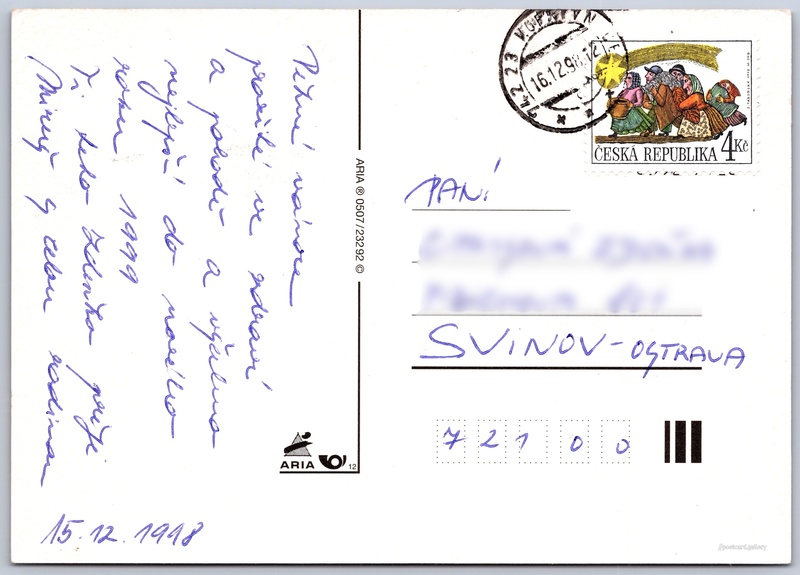 Pěkné vánoce
prožité ve zdraví
a pohodě a všechno
nejlepší do nového
roku 1999
Ti teto Zdenko přeje
Mirek s celou rodinou
15.12.1998
ARIA ® 0507/23292 ©
ARIA
12
742 23 KOPŘIVN
16.12.98.12
ČESKÁ REPUBLIKA 4Kč
PANÍ
SVINOV-OSTRAVA
721 00
//postcard.gallery